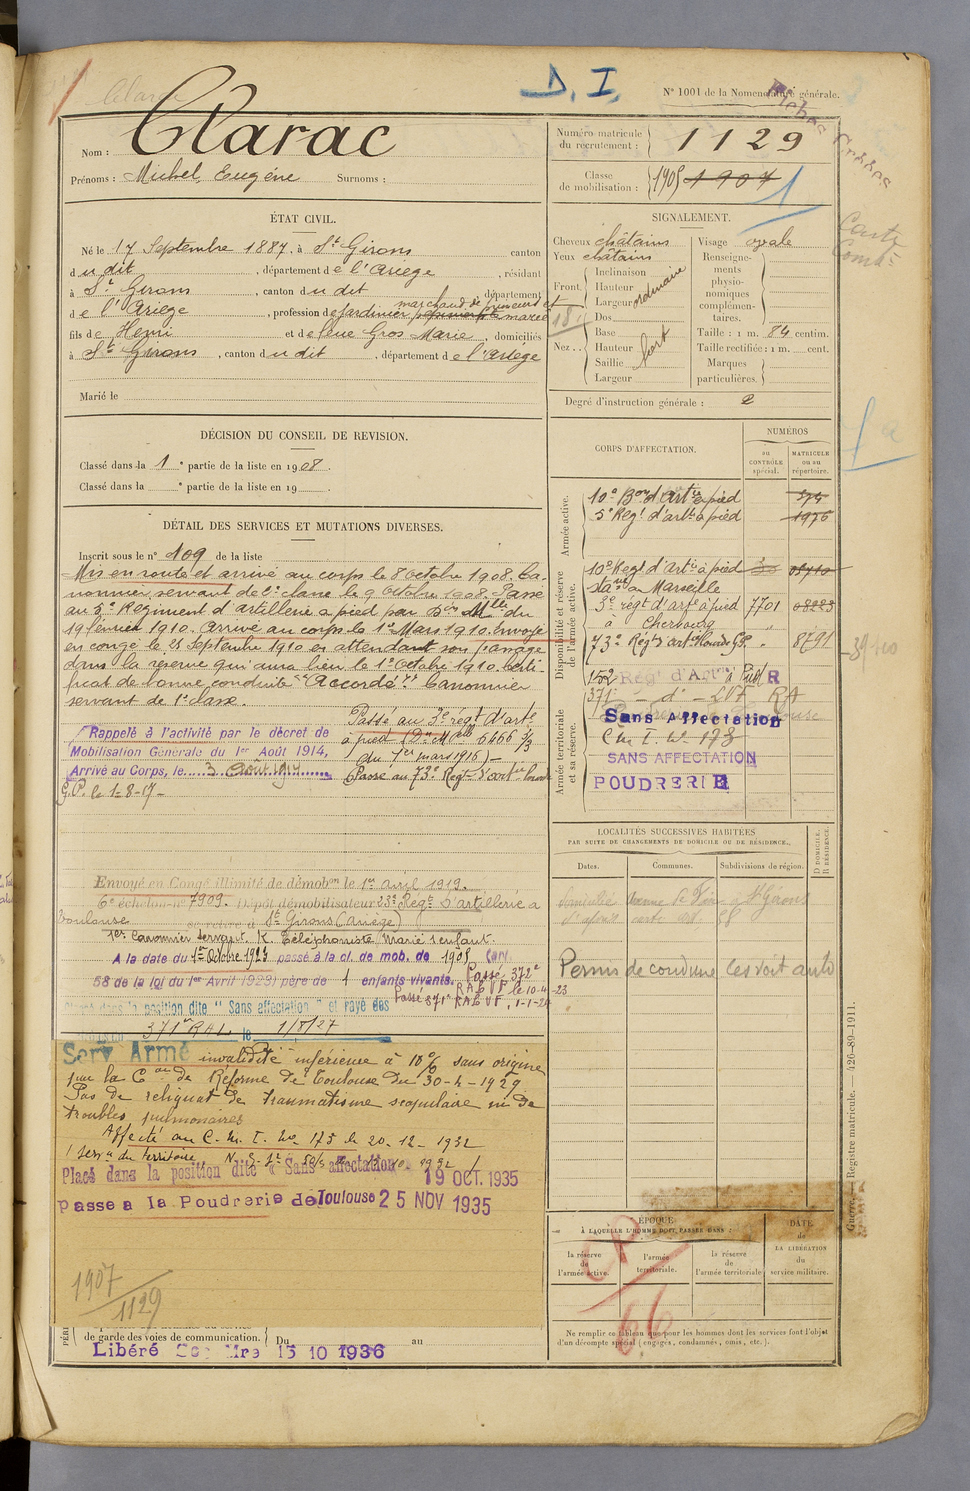 D. I.
N° 1001 de la Nomenclature générale.
Fiches Croses
Clarac
Nom : Clarac
Prénoms : Michel, Eugène Surnoms :
Numéro matricule du recrutement : 1129
Classe de mobilisation : 1905 1907
1
Carte
Comb.
ÉTAT CIVIL.
Né le 17 Septembre 1887, à St Girons canton
d u dit , département d e l'Ariège , résidant
à St Girons , canton d u dit , département
d e l'Ariège , profession de jardinier
marchand de primeurs et
marié
fils de Henri et de feue Gros Marie , domiciliés
à St Girons , canton d u dit , département d e l'Ariège
Marié le
SIGNALEMENT.
Cheveux châtains
Yeux châtains
Front. Inclinaison
Hauteur
Largeur
ordinaire
Nez . . Dos
Base
Hauteur
Saillie
Largeur
fort
Visage ovale
Renseignements physionomiques complémentaires.
Taille : 1 m. 84 centim.
Taille rectifiée : 1 m. cent.
Marques particulières.
Degré d'instruction générale : 2
DÉCISION DU CONSEIL DE REVISION.
Classé dans la 1e partie de la liste en 1908.
Classé dans la e partie de la liste en 19 .
DÉTAIL DES SERVICES ET MUTATIONS DIVERSES.
Inscrit sous le n° 109 de la liste
Mis en route et arrivé au corps le 8 octobre 1908. Ca-
nonnier servant de 2e classe le 9 octobre 1908. Passé
au 5e Régiment d'artillerie à pied par Don Mlle du
19 février 1910. Arrivé au corps le 1er Mars 1910. Envoyé
en congé le 25 Septembre 1910 en attendant son passage
dans la réserve qui aura lieu le 1er Octobre 1910. Certi-
ficat de bonne conduite "Accordé". Canonnier
servant de 1e classe.
Rappelé à l'activité par le décret de
Mobilisation Générale du 1er Août 1914,
Arrivé au Corps, le 3 Août 1914
Passé au 3e régt d'arte
à pied (Dn Mlle 6466 1/3
du 1er mars 1916) -
Passé au 73e Regt d'arte lourde
G.P. le 1-8-17 -
Envoyé en Congé illimité de démobon le 1er avril 1919.
6e échelon n° 7909. Dépôt démobilisateur 23e Regt D'artillerie à
Toulouse
se retire à St Girons (Ariège)
1er Canonnier servant. K. Téléphoniste Marié 1 enfant.
A la date du 1er Octobre 1923 passé à la cl. de mob. de 1905 (art.
58 de la loi du 1er Avril 1923) père de 1 enfants vivants.
Passé 372e
R A L V F le 10-4-23
Passé 371e R A L V F , 1-1-24
dans la position dite "Sans affectation" et rayé des
371e RAL le 1/5/27
Serv Armé invalidité inférieure à 10 % sans origine
par la Con de Réforme de Toulouse du 30-4-1929
Pas de reliquat de traumatisme scapulaire ni de
troubles pulmonaires
Affecté au C. M. I. No 175 le 20-12-1932
Placé dans la position dite "Sans affectation" 19 OCT. 1935
Passé à la Poudrerie de Toulouse 25 NOV 1935
1907
1129
de garde des voies de communication. Du au
Libéré Mre 15 10 1936
CORPS D'AFFECTATION.
NUMÉROS
au CONTRÔLE spécial.
MATRICULE ou au répertoire.
Armée active.
10e Bon d'Arte à pied 374
5e Régt d'arte à pied 1976
Disponibilité et réserve de l'armée active.
10e Regt d'Arte à pied
Marseille
3e régt d'arte à pied 7701 08223
à Cherbourg
73e Rgt d'arte Lourde GP. " 8791
Armée territoriale et sa réserve.
152 Rég. d'Artie à Pied R
371 - d° - LVF RA
Sans Affectation
C M I. No 173
SANS AFFECTATION
POUDRERIE
LOCALITÉS SUCCESSIVES HABITÉES
PAR SUITE DE CHANGEMENTS DE DOMICILE OU DE RÉSIDENCE.
Dates. Communes. Subdivisions de région. D DOMICILE. R RÉSIDENCE.
Permis de conduire les voit auto
ÉPOQUE
À LAQUELLE L'HOMME DOIT PASSER DANS :
la réserve de l'armée active.
l'armée territoriale.
la réserve de l'armée territoriale
DATE de LA LIBÉRATION du service militaire.
66
Ne remplir ce tableau que pour les hommes dont les services font l'objet
d'un décompte spécial (engagés, condamnés, omis, etc.).
Guerre. — Registre matricule. — 426-89-1911.